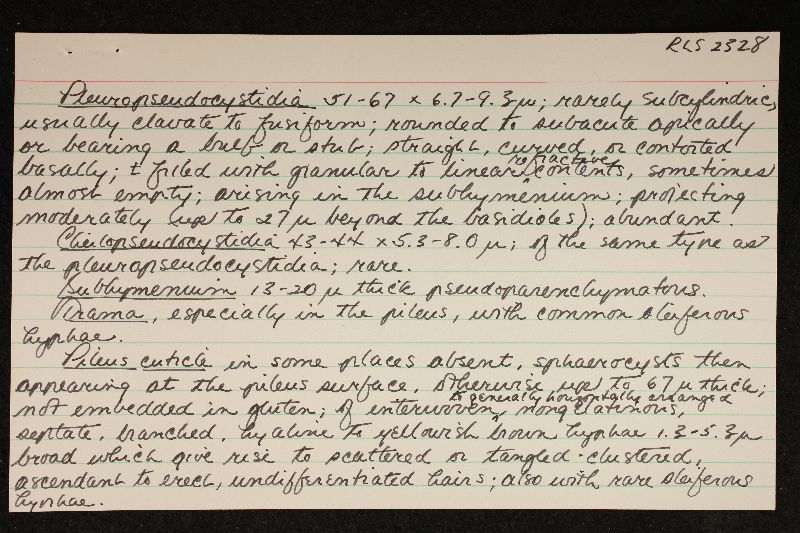 RLS 2328
Pleuropseudocystidia 51-67 x 6.7-9.3 µ; rarely subcylindric,
usually clavate to fusiform; rounded to subacute apically
or bearing a bulb or stub; straight, curved, or contorted
basally; ± filled with granular to linear refractive contents, sometimes
almost empty; arising in the subhymenium; projecting
moderately (up to 27 µ beyond the basidioles); abundant.
Cheilopseudocystidia 43-44 x 5.3-8.0 µ; of the same type as
the pleuropseudocystidia; rare.
Subhymenium 13-20 µ thick pseudoparenchymatous.
Trama, especially in the pileus, with common oleiferous
hyphae.
Pileus cuticle in some places absent, sphaerocysts then
appearing at the pileus surface, otherwise up to 67 µ thick;
not embedded in gluten; of interwoven to generally horizontally arranged, nongelatinous,
septate, branched, hyaline to yellowish brown hyphae 1.3-5.3 µ
broad which give rise to scattered or tangled-clustered,
ascendant to erect, undifferentiated hairs; also with rare oleiferous
hyphae.